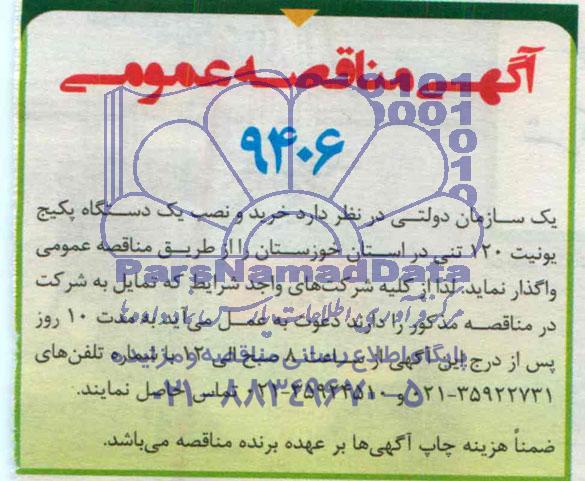 آگهی مناقصه عمومی
۹۴۰۶
یک سازمان دولتی در نظر دارد خرید و نصب یک دستگاه پکیج
یونیت ۱۲۰ تنی در استان خوزستان را از طریق مناقصه عمومی
واگذار نماید. لذا از کلیه شرکت‌های واجد شرایط که تمایل به شرکت
در مناقصه مذکور را دارند دعوت به عمل می‌آید به مدت ۱۰ روز
پس از درج این آگهی از ساعت ۸ صبح الی ۱۲ با شماره تلفن‌های
۰۲۱-۳۵۹۲۲۷۳۱ و ۰۲۱-۳۵۹۲۴۵۱۰ تماس حاصل نمایند.
ضمناً هزینه چاپ آگهی‌ها بر عهده برنده مناقصه می‌باشد.
ParsNamadData
مرکز فرآوری اطلاعات پارس نماد داده‌ها
پایگاه اطلاع رسانی مناقصه و مزایده
۰۲۱-۸۸۳۴۹۶۷۰-۵